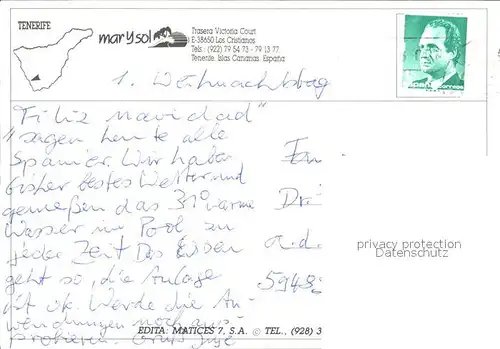 TENERIFE
mar y sol
Trasera Victoria Court
E-38650 Los Cristianos
Tels.: (922) 79 54 73 - 79 13 77
Tenerife. Islas Canarias. España
1. Weihnachtstag
"Feliz navidad"
sagen heute alle
Spanier. Wir haben
bisher bestes Wetter und
genießen das 31° warme
Wasser im Pool zu
jeder Zeit. Das Essen
geht so, die Anlage
ist ok. Werde die An-
wendungen noch aus-
probieren. Gruß
Fam
Dr.
a.d.
5948
privacy protection
Datenschutz
EDITA: MATICES 7, S.A. © TEL., (928) 3